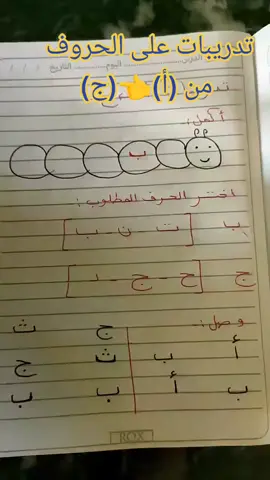 تدريبات على الحروف
من (أ)👈(ج)
اليوم
التاريخ
أكمل:
ب
اختر الحرف المطلوب:
ب [ ت - ن - ب ]
ج [ ح - ج - د ]
وصل:-
ج ث
أ ب ث ج
ب أ ب ب
ROX